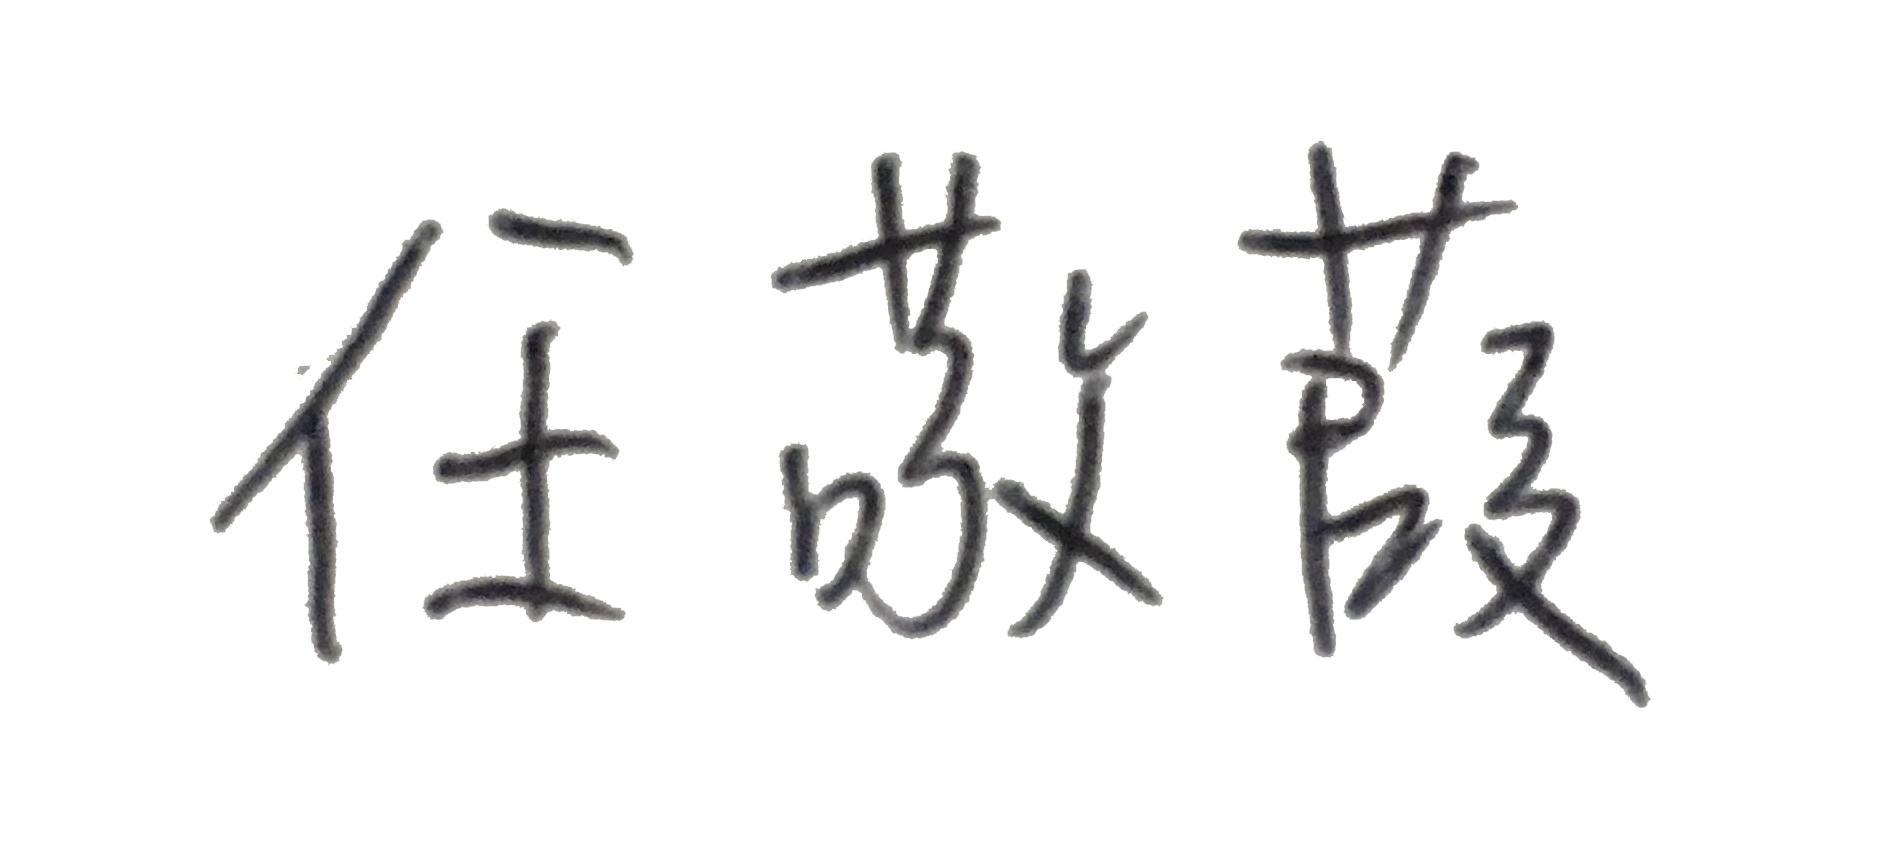 任敬葭